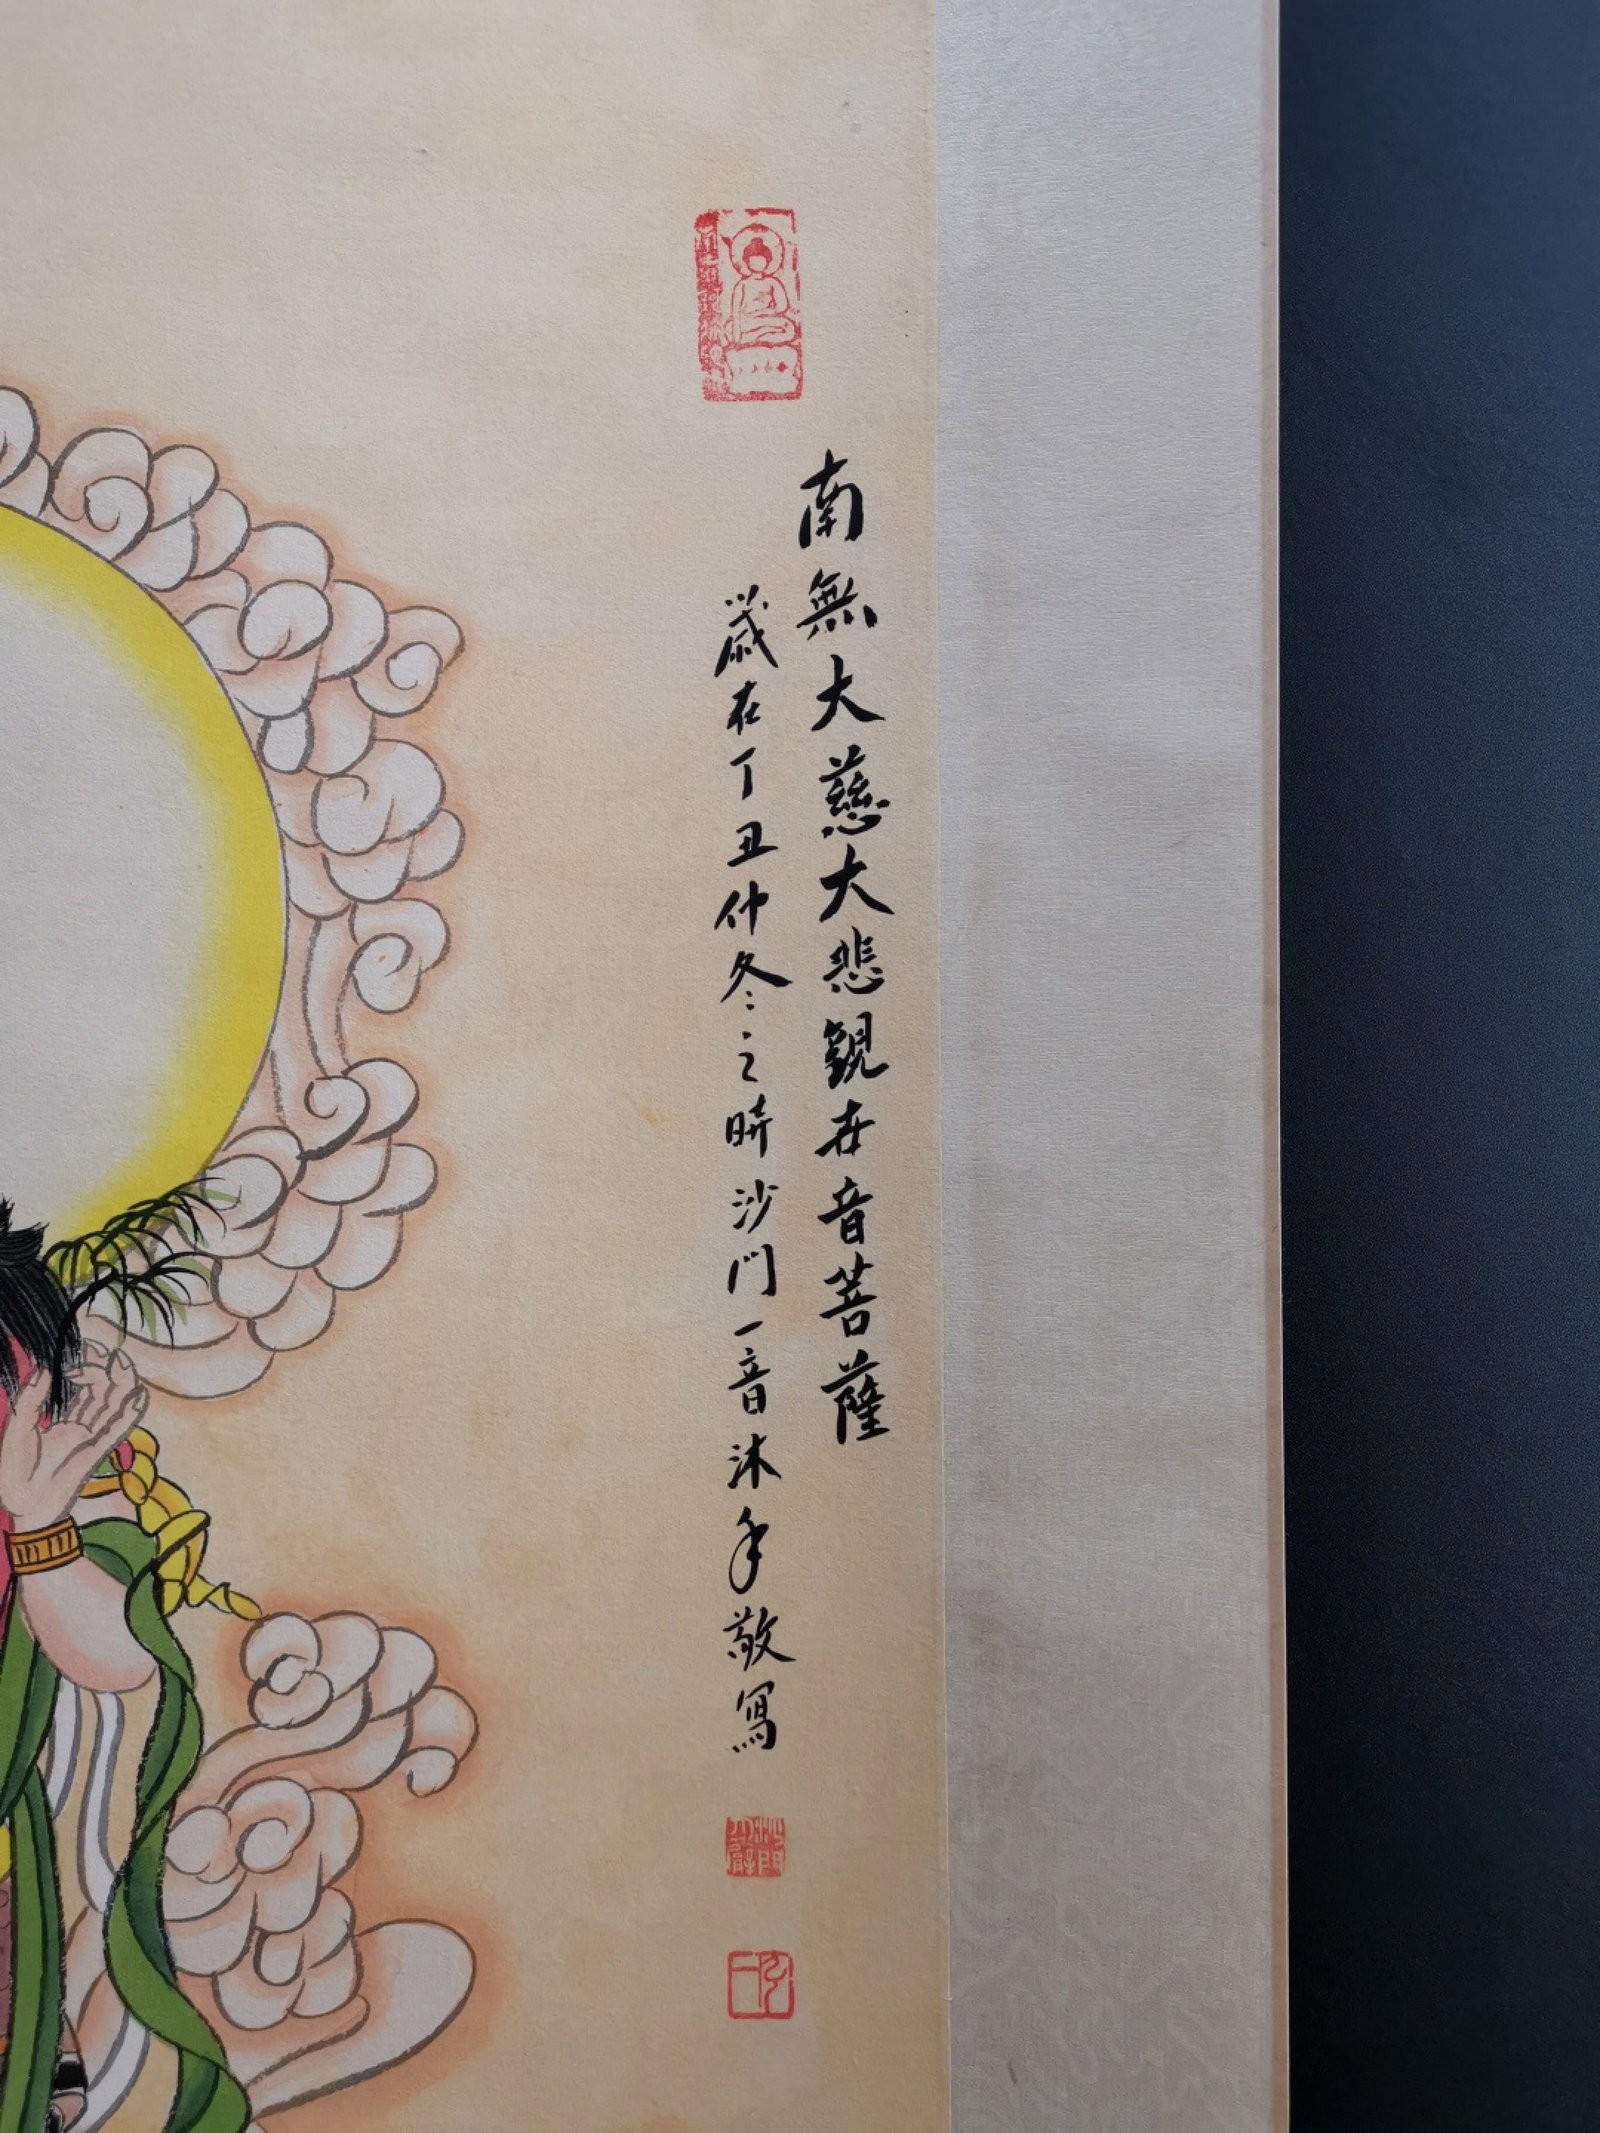 南無大慈大悲觀世音菩薩
歲在丁丑仲冬之時沙門一音沐手敬寫